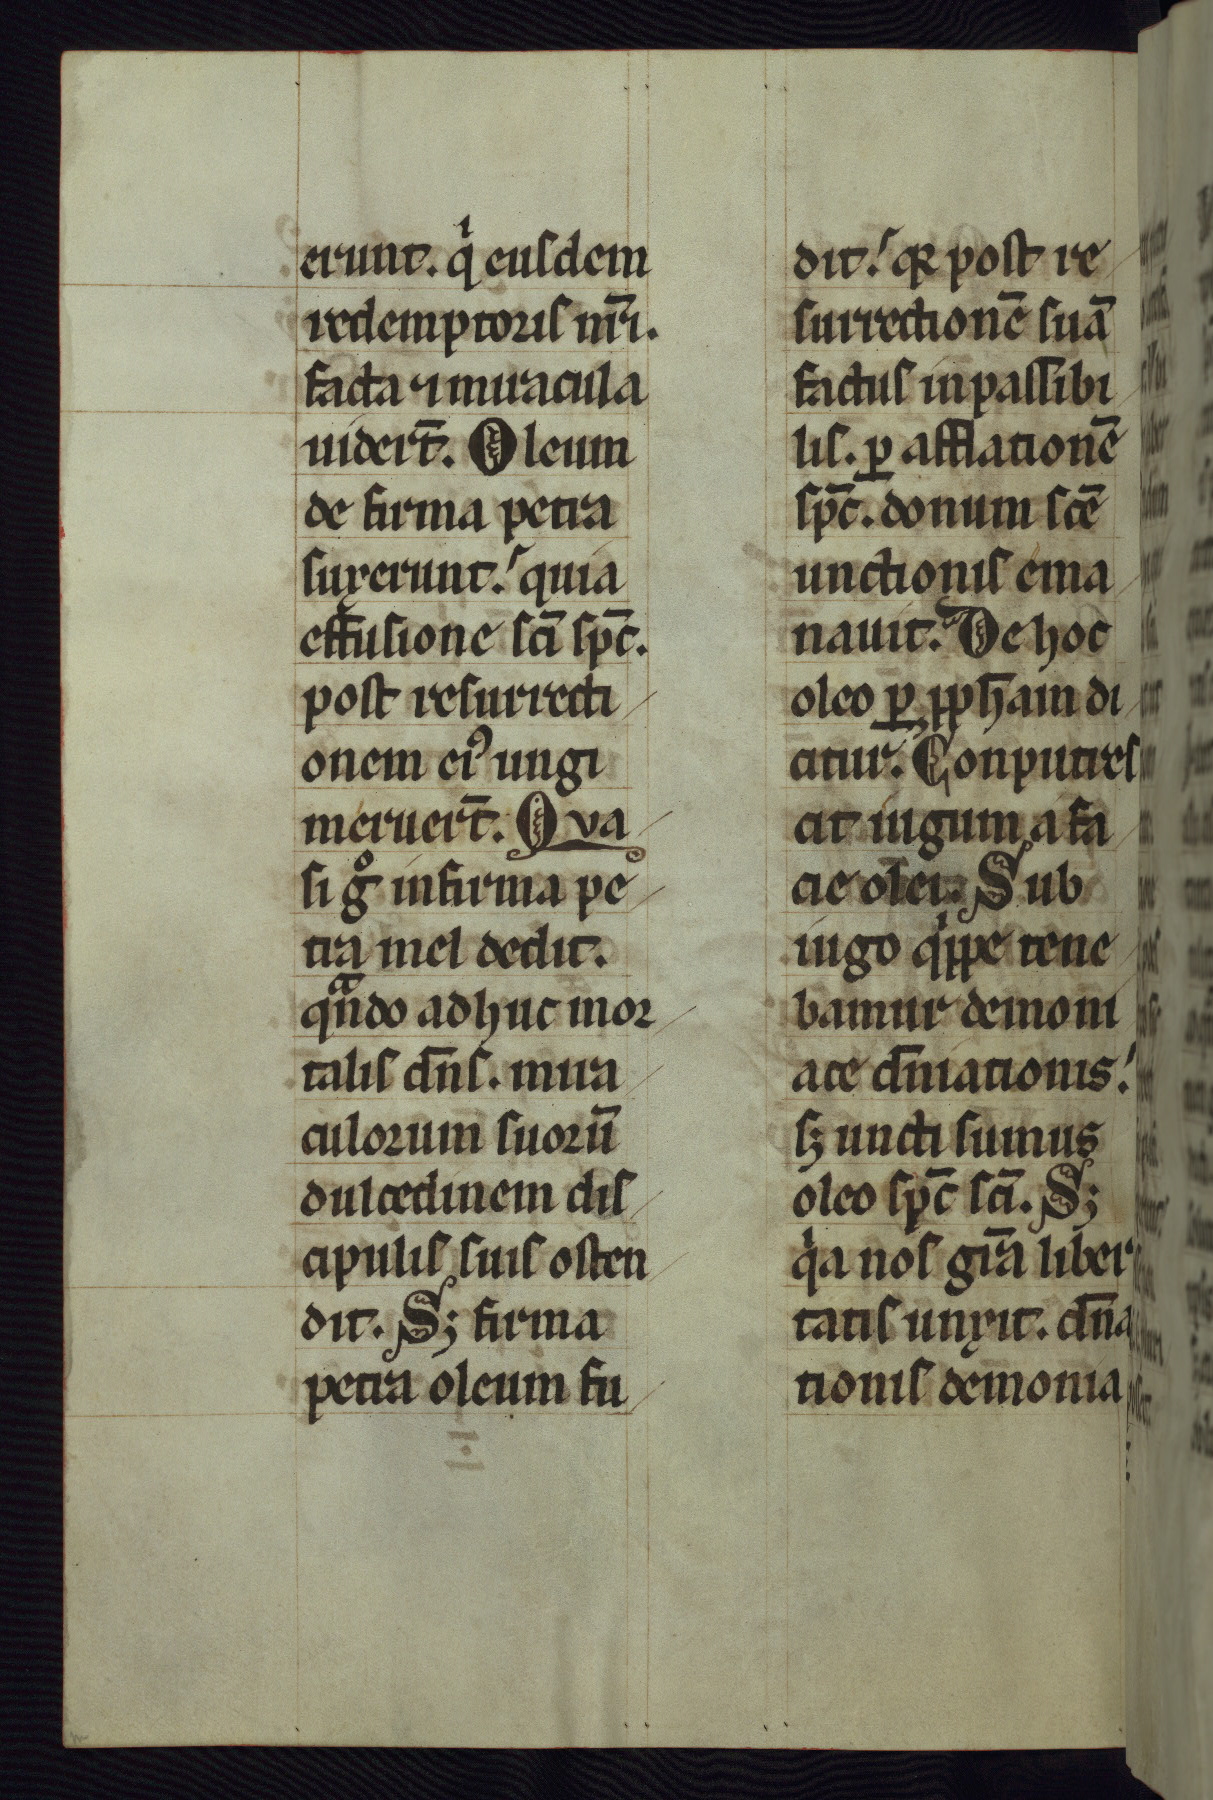 erunt. qͥ eusdem
redemptoris nr̄i.
facta ⁊ miracula
uidert̄. Oleum
de firma petra
suxerunt. quia
effusione sc̄i sp̄c.
post resurrecti
onem ei᷒ ungi
meruert̄. Qva
si gͦ infirma pe
tra mel dedit.
qͣndo adhuc mor
talis dn̄s. mira
culorum suorū
dulcedinem dis
cipulis suis osten
dit. Sꝫ firma
petra oleum fu
dit. qꝛ post re
surrectionē suā
factus inpassibi
lis. ꝑ afflationē
sp̄c. donum scē
unctionis ema
nauit. De hoc
oleo ꝑ ꝓph̄am di
citur. Conputres
cit iugum a fa
cie olei. Sub
iugo qͥppe tene
bamur demoni
ace dn̄iationis.
sꝫ uncti sumus
oleo sp̄c sc̄i. Sꝫ
qͥa nos gr̄a liber
tatis unxit. dn̄a
tionis demonia